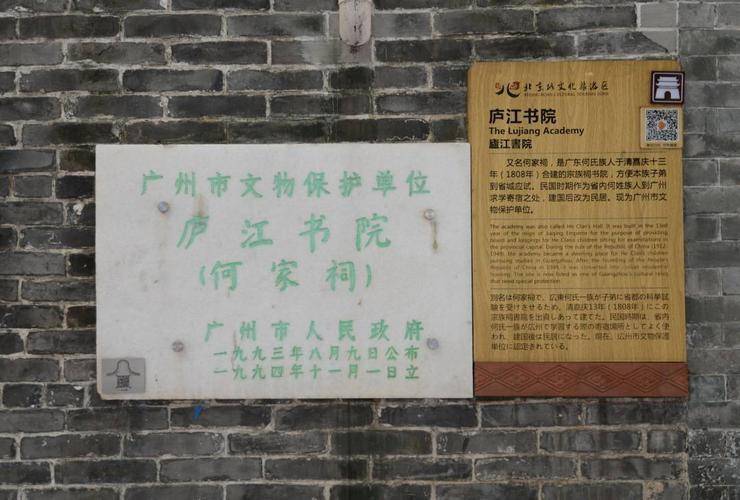 广州市文物保护单位
庐江书院
(何家祠)
广州市人民政府
一九九三年八月九日公布
一九九四年十一月一日立
北京路文化旅游区
BEIJING ROAD CULTURAL TOURISM ZONE
庐江书院
The Lujiang Academy
廬江書院
又名何家祠，是广东何氏族人于清嘉庆十三
年（1808年）合建的宗族祠书院，方便本族子弟
到省城应试。民国时期作为省内何姓族人到广州
求学寄宿之处，建国后改为民居。现为广州市文
物保护单位。
The academy was also called He Clan's Hall. It was built in the 13rd
year of the reign of Jiaqing Emperor for the purpose of providing
board and lodgings for He Clan's children sitting for examinations in
the provincial capital. During the rule of the Republic of China (1912-
1949), the academy became a dwelling place for He Clan's children
pursuing studies in Guangzhou. After the founding of the People's
Republic of China in 1949, it was converted into
The site is now listed as one of Guangzhou's cultural relics
that need special protection.
別名は何家祠で、広東何氏一族が子弟に省都の科挙試
験を受けさせるため、清嘉慶13年（1808年）にこの
宗族祠書院を出資しあって建てた。民国時期は、省内
何氏一族が広州で学習する際の寄宿場所としてよく使
われ、建国後は民居になった。現在、広州市文物保護
単位に認定されている。